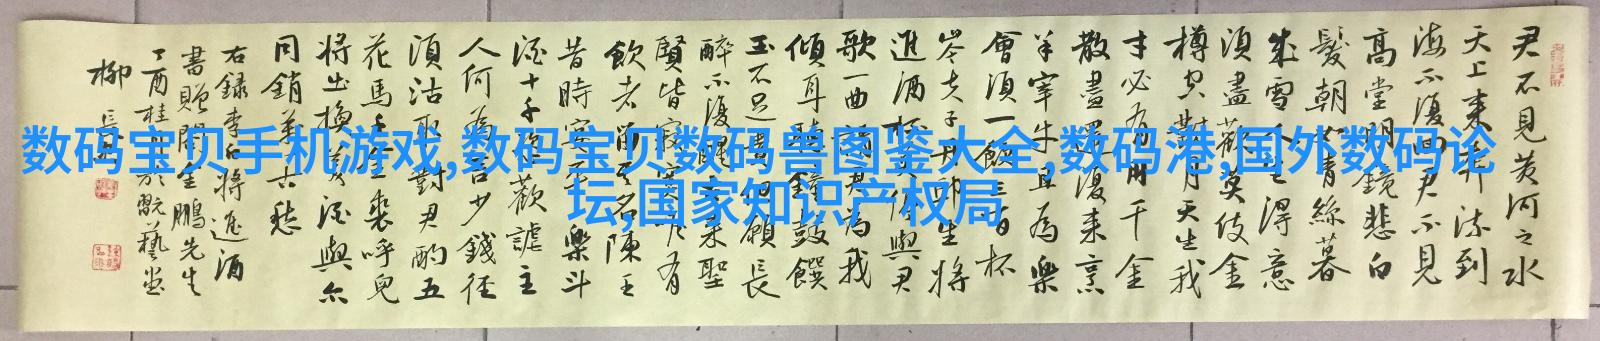 君不見黄河之水
天上来奔流到
海不復回君不見
高堂明鏡悲白
髮朝如青絲暮
成雪人生得意
須盡歡莫使金
樽空對月天生我
才必有用千金
散盡還復来烹
羊宰牛且為樂
會須一飲三百杯
岑夫子丹邱生將
進酒杯莫停與君
歌一曲請君為我
傾耳聽鐘鼓饌
玉不足貴但願長
醉不復醒古来聖
賢皆寂寞惟有
飲者留其名陳王
昔時宴平樂斗
酒十千恣歡謔主
人何為言少錢径
須沽取對君酌五
花馬千金裘呼兒
將出換美酒與尔
同銷萬古愁
右録李白將進酒
書贈金鵬先生
丁酉桂月於翫藝堂
柳
数码宝贝手机游戏,数码宝贝数码兽图鉴大全,数码港,国外数码论
坛,国家知识产权局